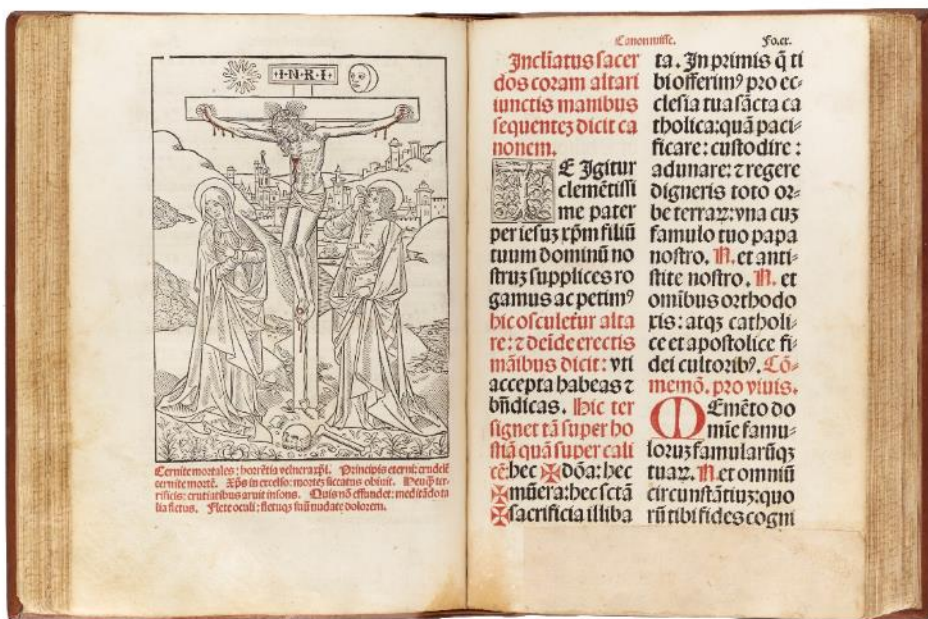 ·I·N·R·I·
Cernite mortales: horrẽtia vulnera xp̃i. Principis eterni: crudelẽ
cernite mortẽ. Xp̃s in excelso: mortez siccatus obiuit.
rificis: crutiatibus aruit insons. Quis nõ effundet: meditãdo ta
lia fletus. Flete oculi: fletuqz suũ nudate dolorem.
Canon misse. Fo.cx.
Inclĩatus sacer
dos coram altari
iunctis manibus
sequentez dicit ca
nonem.
TE Igitur
clemẽtissi
me pater
per iesuz xp̃m filiũ
tuum dominũ no
struz supplices ro
gamus ac petimꝰ
hic osculetur alta
re: ⁊ deĩde erectis
mãibus dicit: vti
accepta habeas ⁊
bñdicas. Hic ter
signet tã super ho
stiã quã super cali
cẽ: hec ✠ dõa: hec
✠ mũera: hec sctã
✠ sacrificia illiba
ta. In primis q̃ ti
bi offerimꝰ pro ec-
clesia tua sãcta ca
tholica: quã paci-
ficare: custodire:
adunare: ⁊ regere
digneris toto or-
be terraꝝ: vna cuz
famulo tuo papa
nostro. N. et anti-
stite nostro. N. et
omĩbus orthodo
xis: atqz catholi-
ce et apostolice fi-
dei cultoribꝰ. Cõ-
memõ. pro viuis.
MEmẽto do
mĩe famu-
loruz famularũqz
tuaꝝ. N. et omniũ
circunstãtiuz: quo
rũ tibi fides cogni